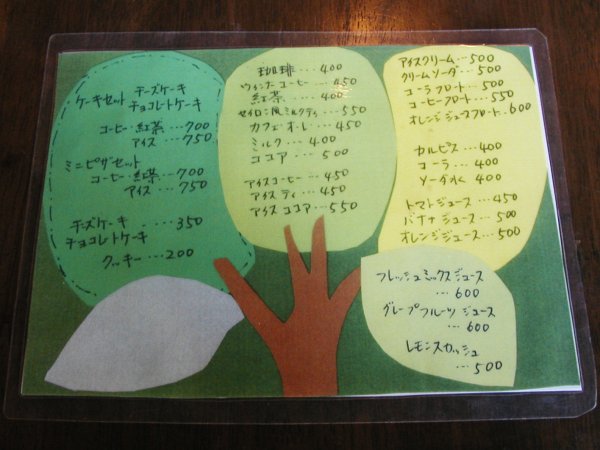 ケーキセット チーズケーキ
チョコレートケーキ
コーヒー・紅茶…700
アイス…750
ミニピザセット
コーヒー・紅茶…700
アイス…750
チーズケーキ…350
チョコレートケーキ
クッキー…200
珈琲…400
ウィンナーコーヒー…450
紅茶…400
セイロン風ミルクティ…550
カフェオーレ…450
ミルク…400
ココア…500
アイスコーヒー…450
アイスティ…450
アイスココア…550
アイスクリーム…500
クリームソーダ…500
コーラフロート…500
コーヒーフロート…550
オレンジジュースフロート…600
カルピス…400
コーラ…400
ソーダ水 400
トマトジュース…450
バナナジュース…500
オレンジジュース…500
フレッシュミックスジュース
…600
グレープフルーツジュース
…600
レモンスカッシュ
…500